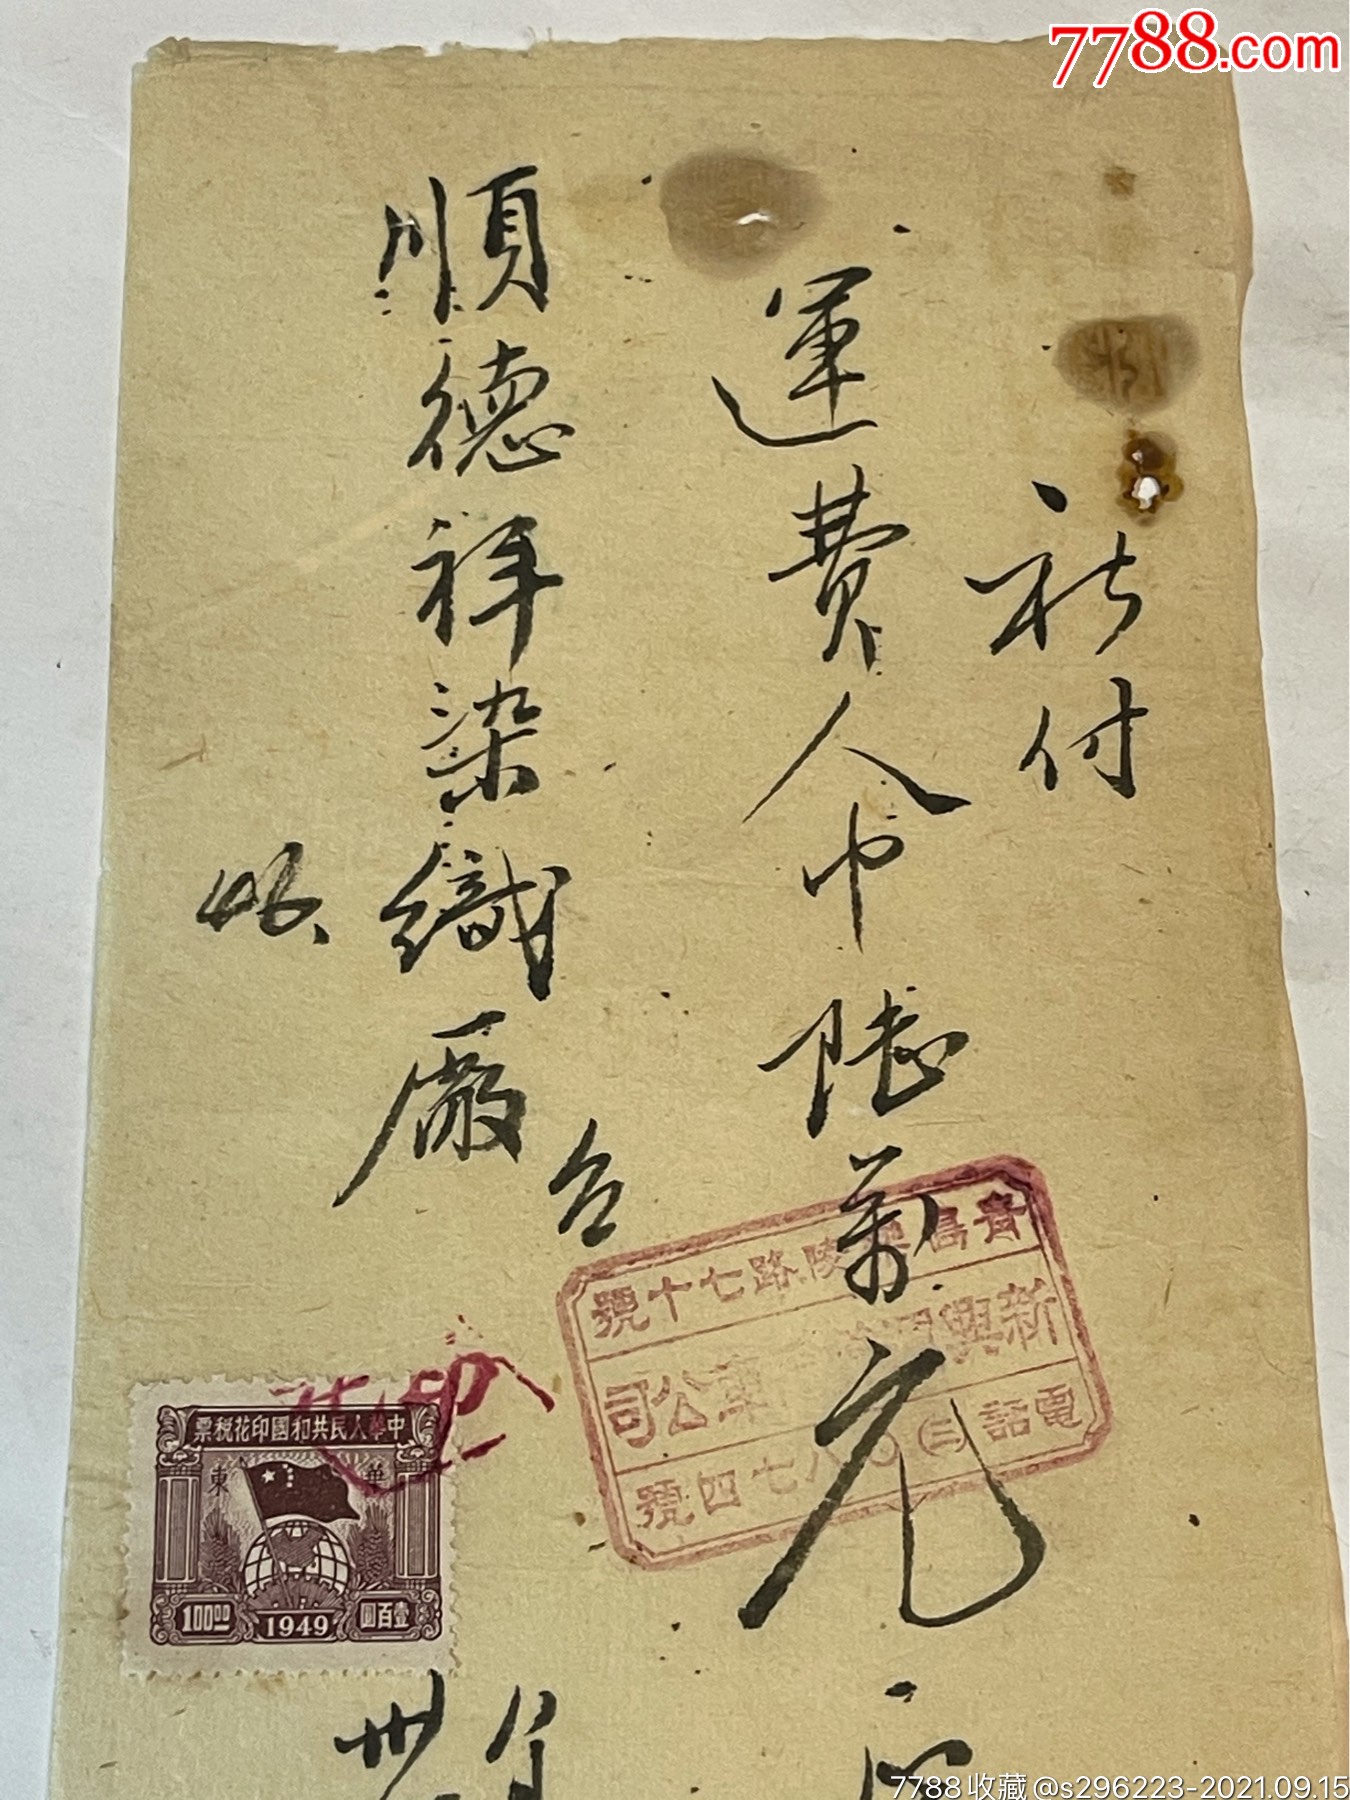 7788.com
祈付
運費人巾陸萬元
順德祥染織廠 台
照
青島 陵路七十號
新興 車公司
電話(三)〇八七四號
中華人民共和國印花稅票
華東
100.00
1949
壹百圓
卅
7788收藏@s296223-2021.09.15